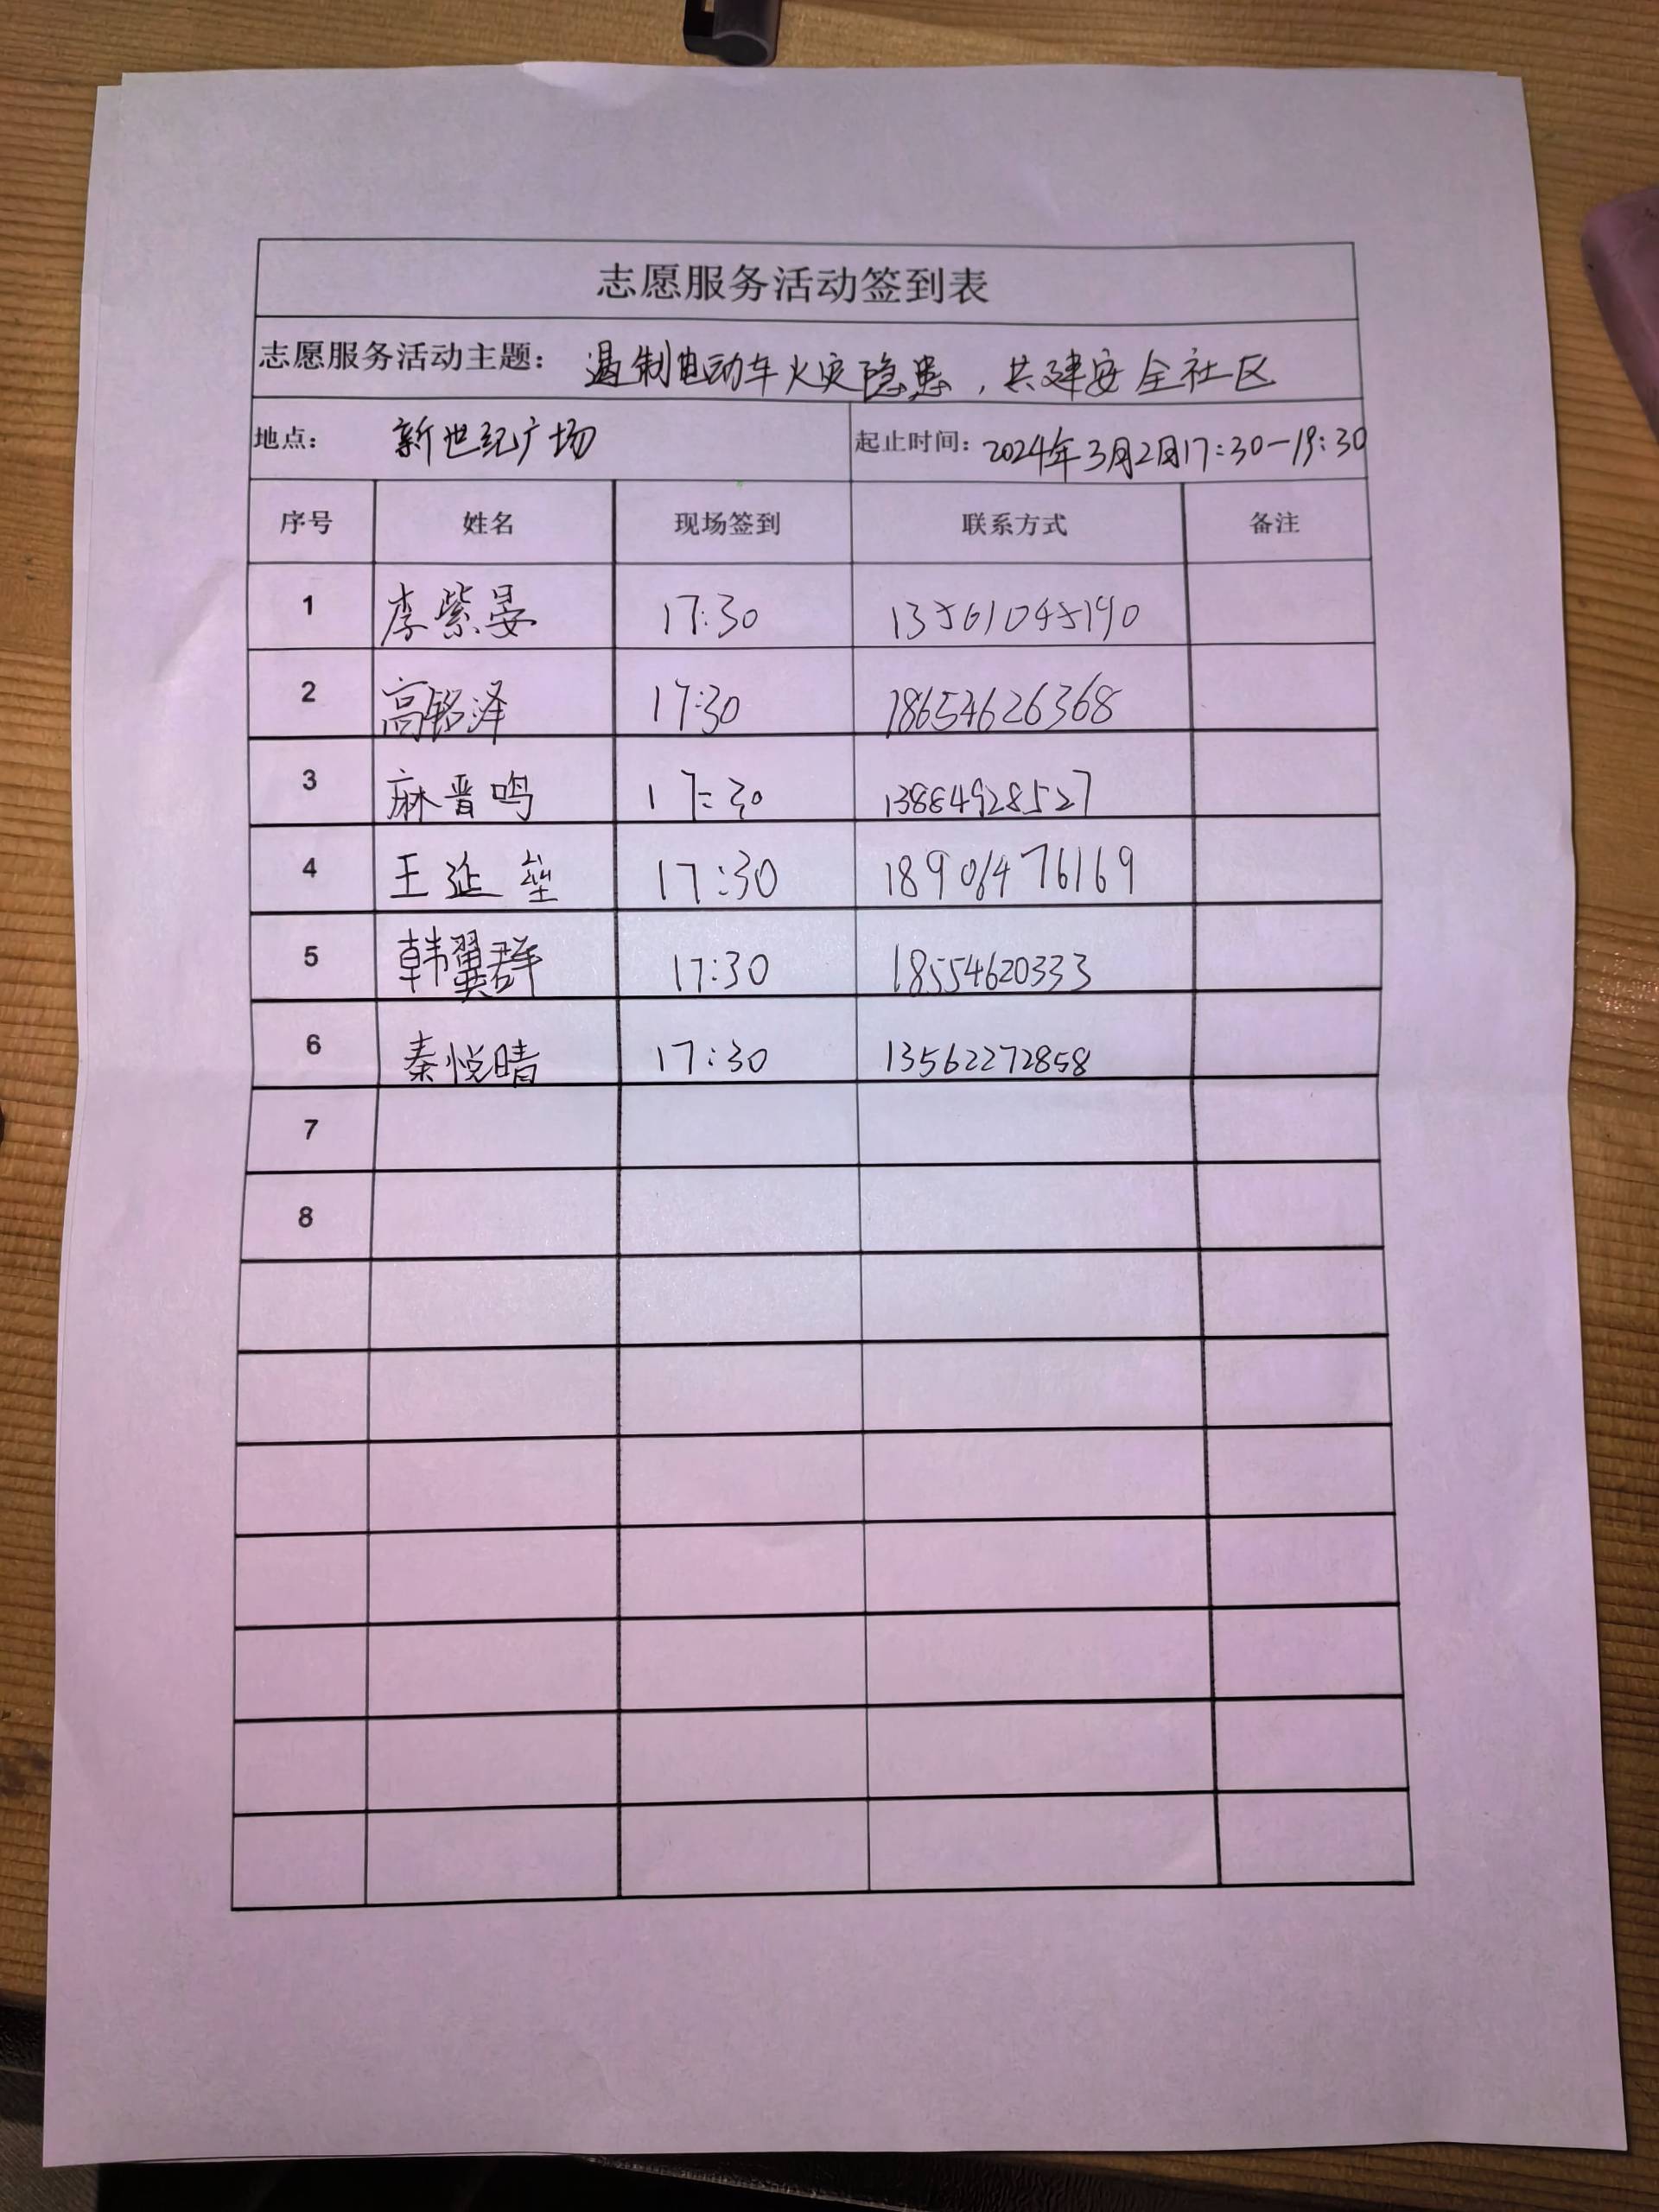 志愿服务活动签到表
志愿服务活动主题： 遏制电动车火灾隐患，共建安全社区
地点： 新世纪广场 起止时间：2024年3月2日17:30-19:30
序号 姓名 现场签到 联系方式 备注
1 李紫晏 17:30 13561045190
2 高铭泽 17:30 18654626368
3 麻晋鸣 17:30 13864928527
4 王延垒 17:30 18906476169
5 韩翼群 17:30 18554620333
6 秦悦晴 17:30 13562272858
7
8